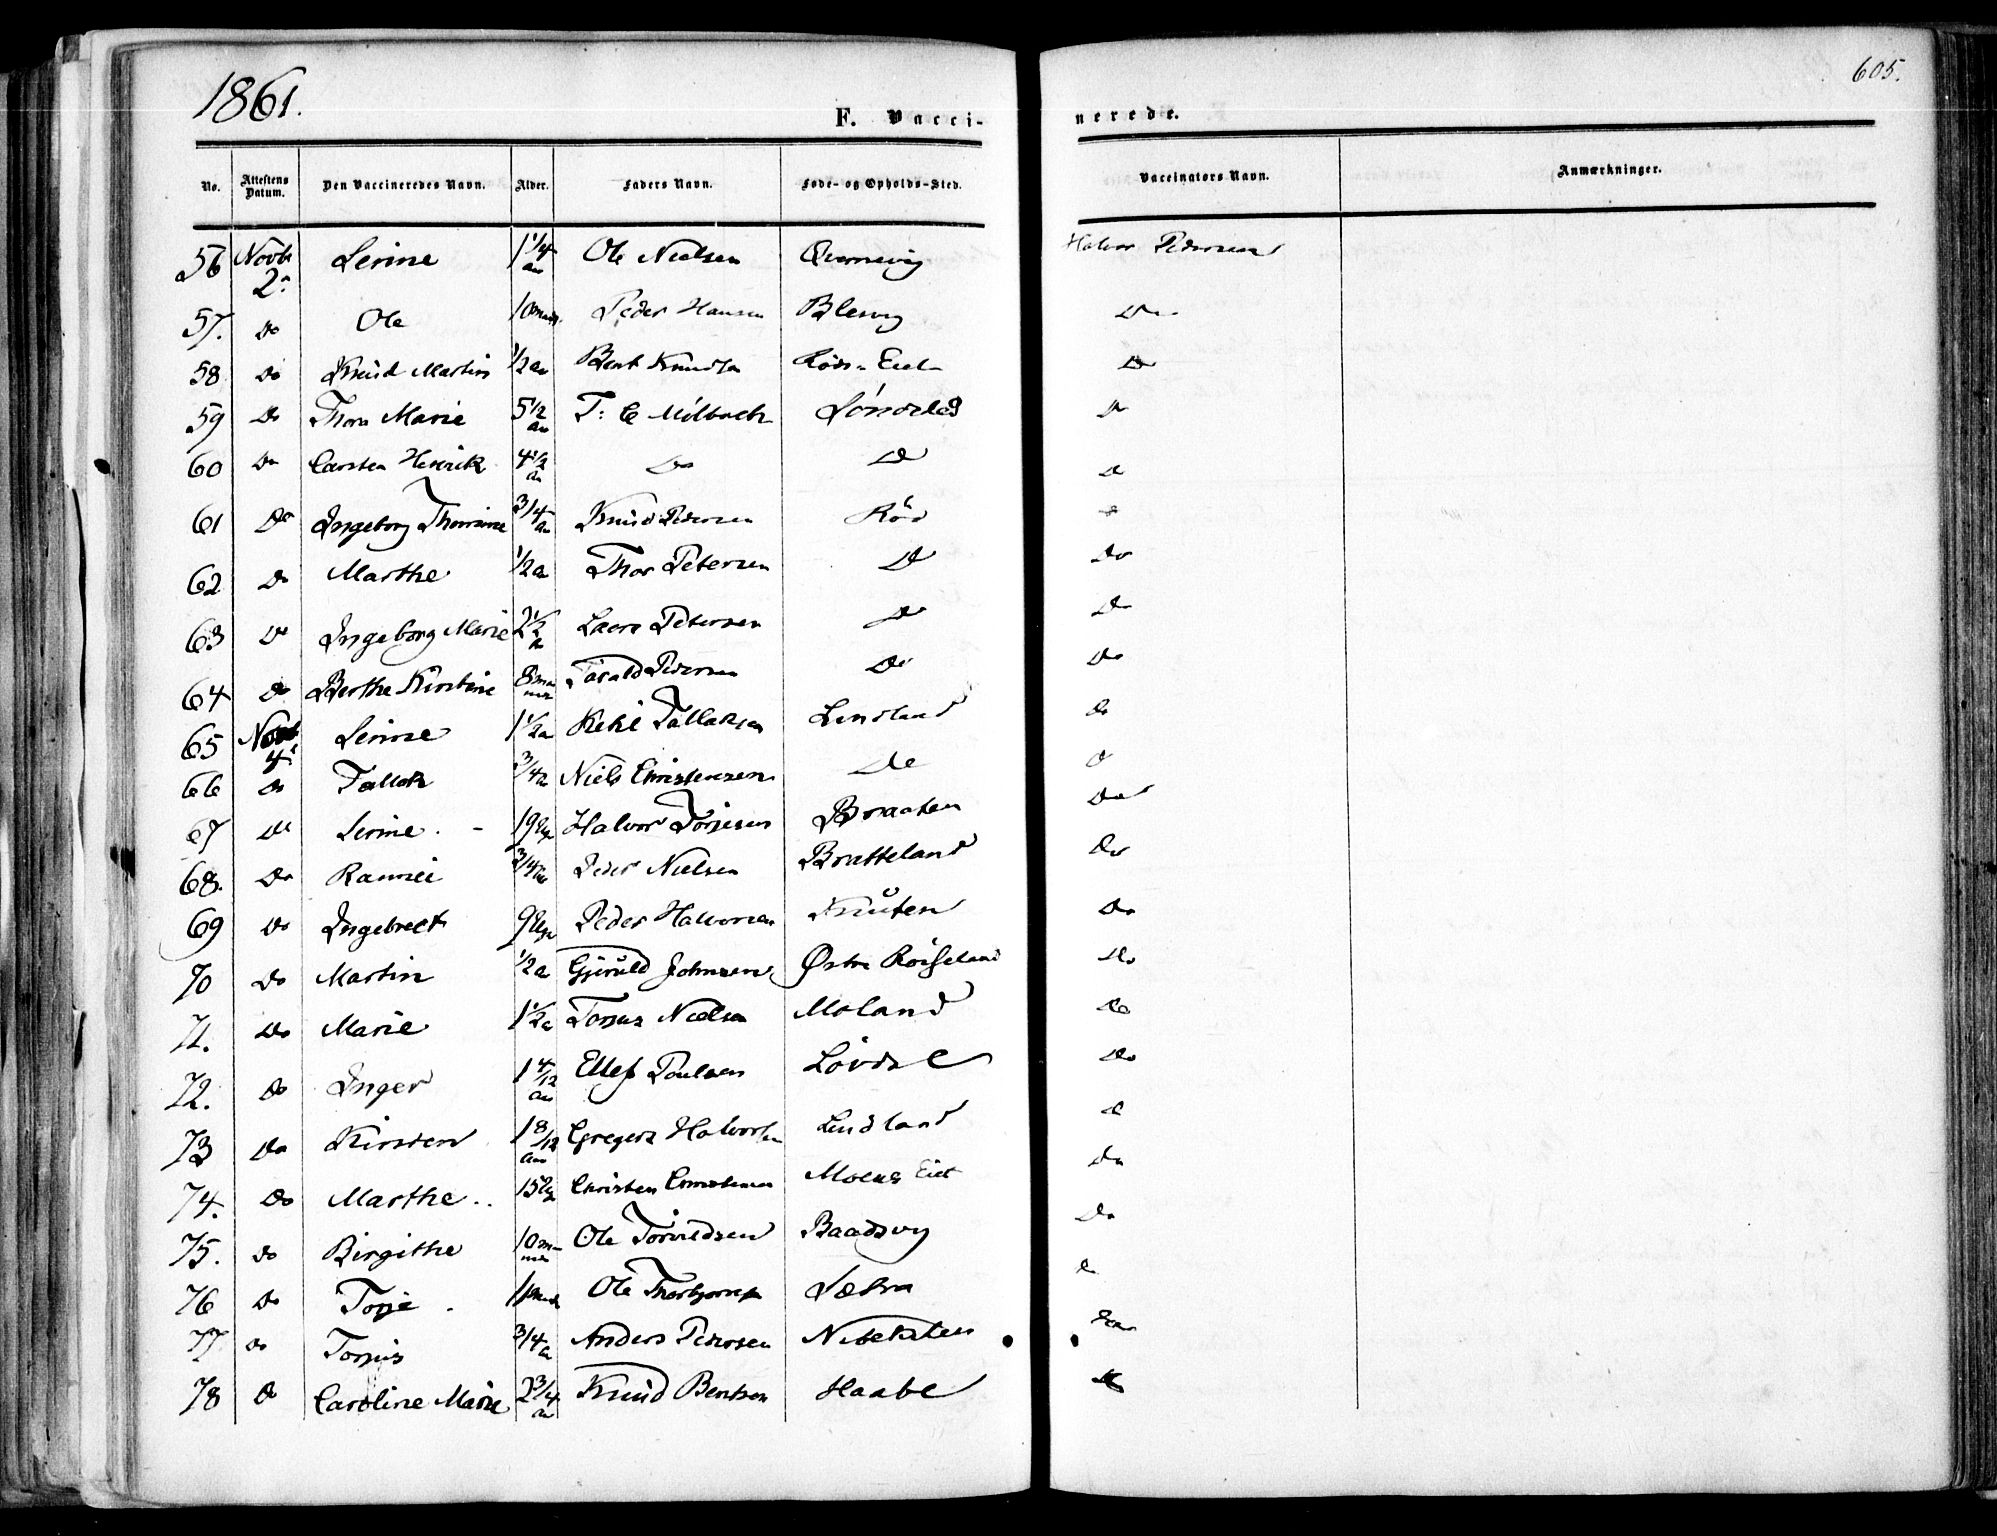 1861.
605.
F. Vacci-
nerede.
No. Attestens Datum. Den Vaccineredes Navn. Alder. Faders Navn. Føde- og Opholds-Sted. Vaccinators Navn. Anmærkninger.
56 Novbr 2 Serine 1 1/4 aar Ole Nielsen Halvor Pedersen
57. Do Ole 10 Peder Hansen Do
58 Do Knud Martin 1/2 aar Bent Do
59 Do Thora Marie 5 1/2 aar T: C Milbach Do
60 Do Carsten Henrik 4 1/2 aar Do Do Do
61 Do Ingeborg Thomine 3/4 aar Knud Pedersen Rød
62 Do Marthe 1/2 a Thor Petersen Do Do
63 Do Ingeborg Marie 2 1/2 a Petersen Do Do
64 Do Berthe Kirstine 8 Pedersen Do Do
65 Novb 4 Serine 1 1/2 a Tallaksen Lindland Do
66 Do Tallak 3/4 a Niels Christensen Do Do
67 Do Serine 19 Halvor Torjesen Braaten Do
68. Do 3/4 Peder Nielsen Bratteland Do
69 Do Ingebret 9 Peder Halvorsen Knuten Do
70 Do Martin 1/2 a Gjeruld Johnsen Østre Do
71. Do Marie 1 1/2 a Torjus Nielsen Moland Do
72. Do Inger 1 4/12 aar Ellef Poulsen Løvdal Do
73 Do Kirsten 1 8/12 aar Gregers Halvorsen Lindland Do
74. Do Marthe 15 Christen Moens Eiet Do
75. Do Birgithe 10 Ole Baadsvig Do
76 Do Torje Ole Do
77 Do Torjus 3/4 a Anders Pedersen Do
78 Do Caroline Marie 2 3/4 aar Knud Bentsen Haabe Do